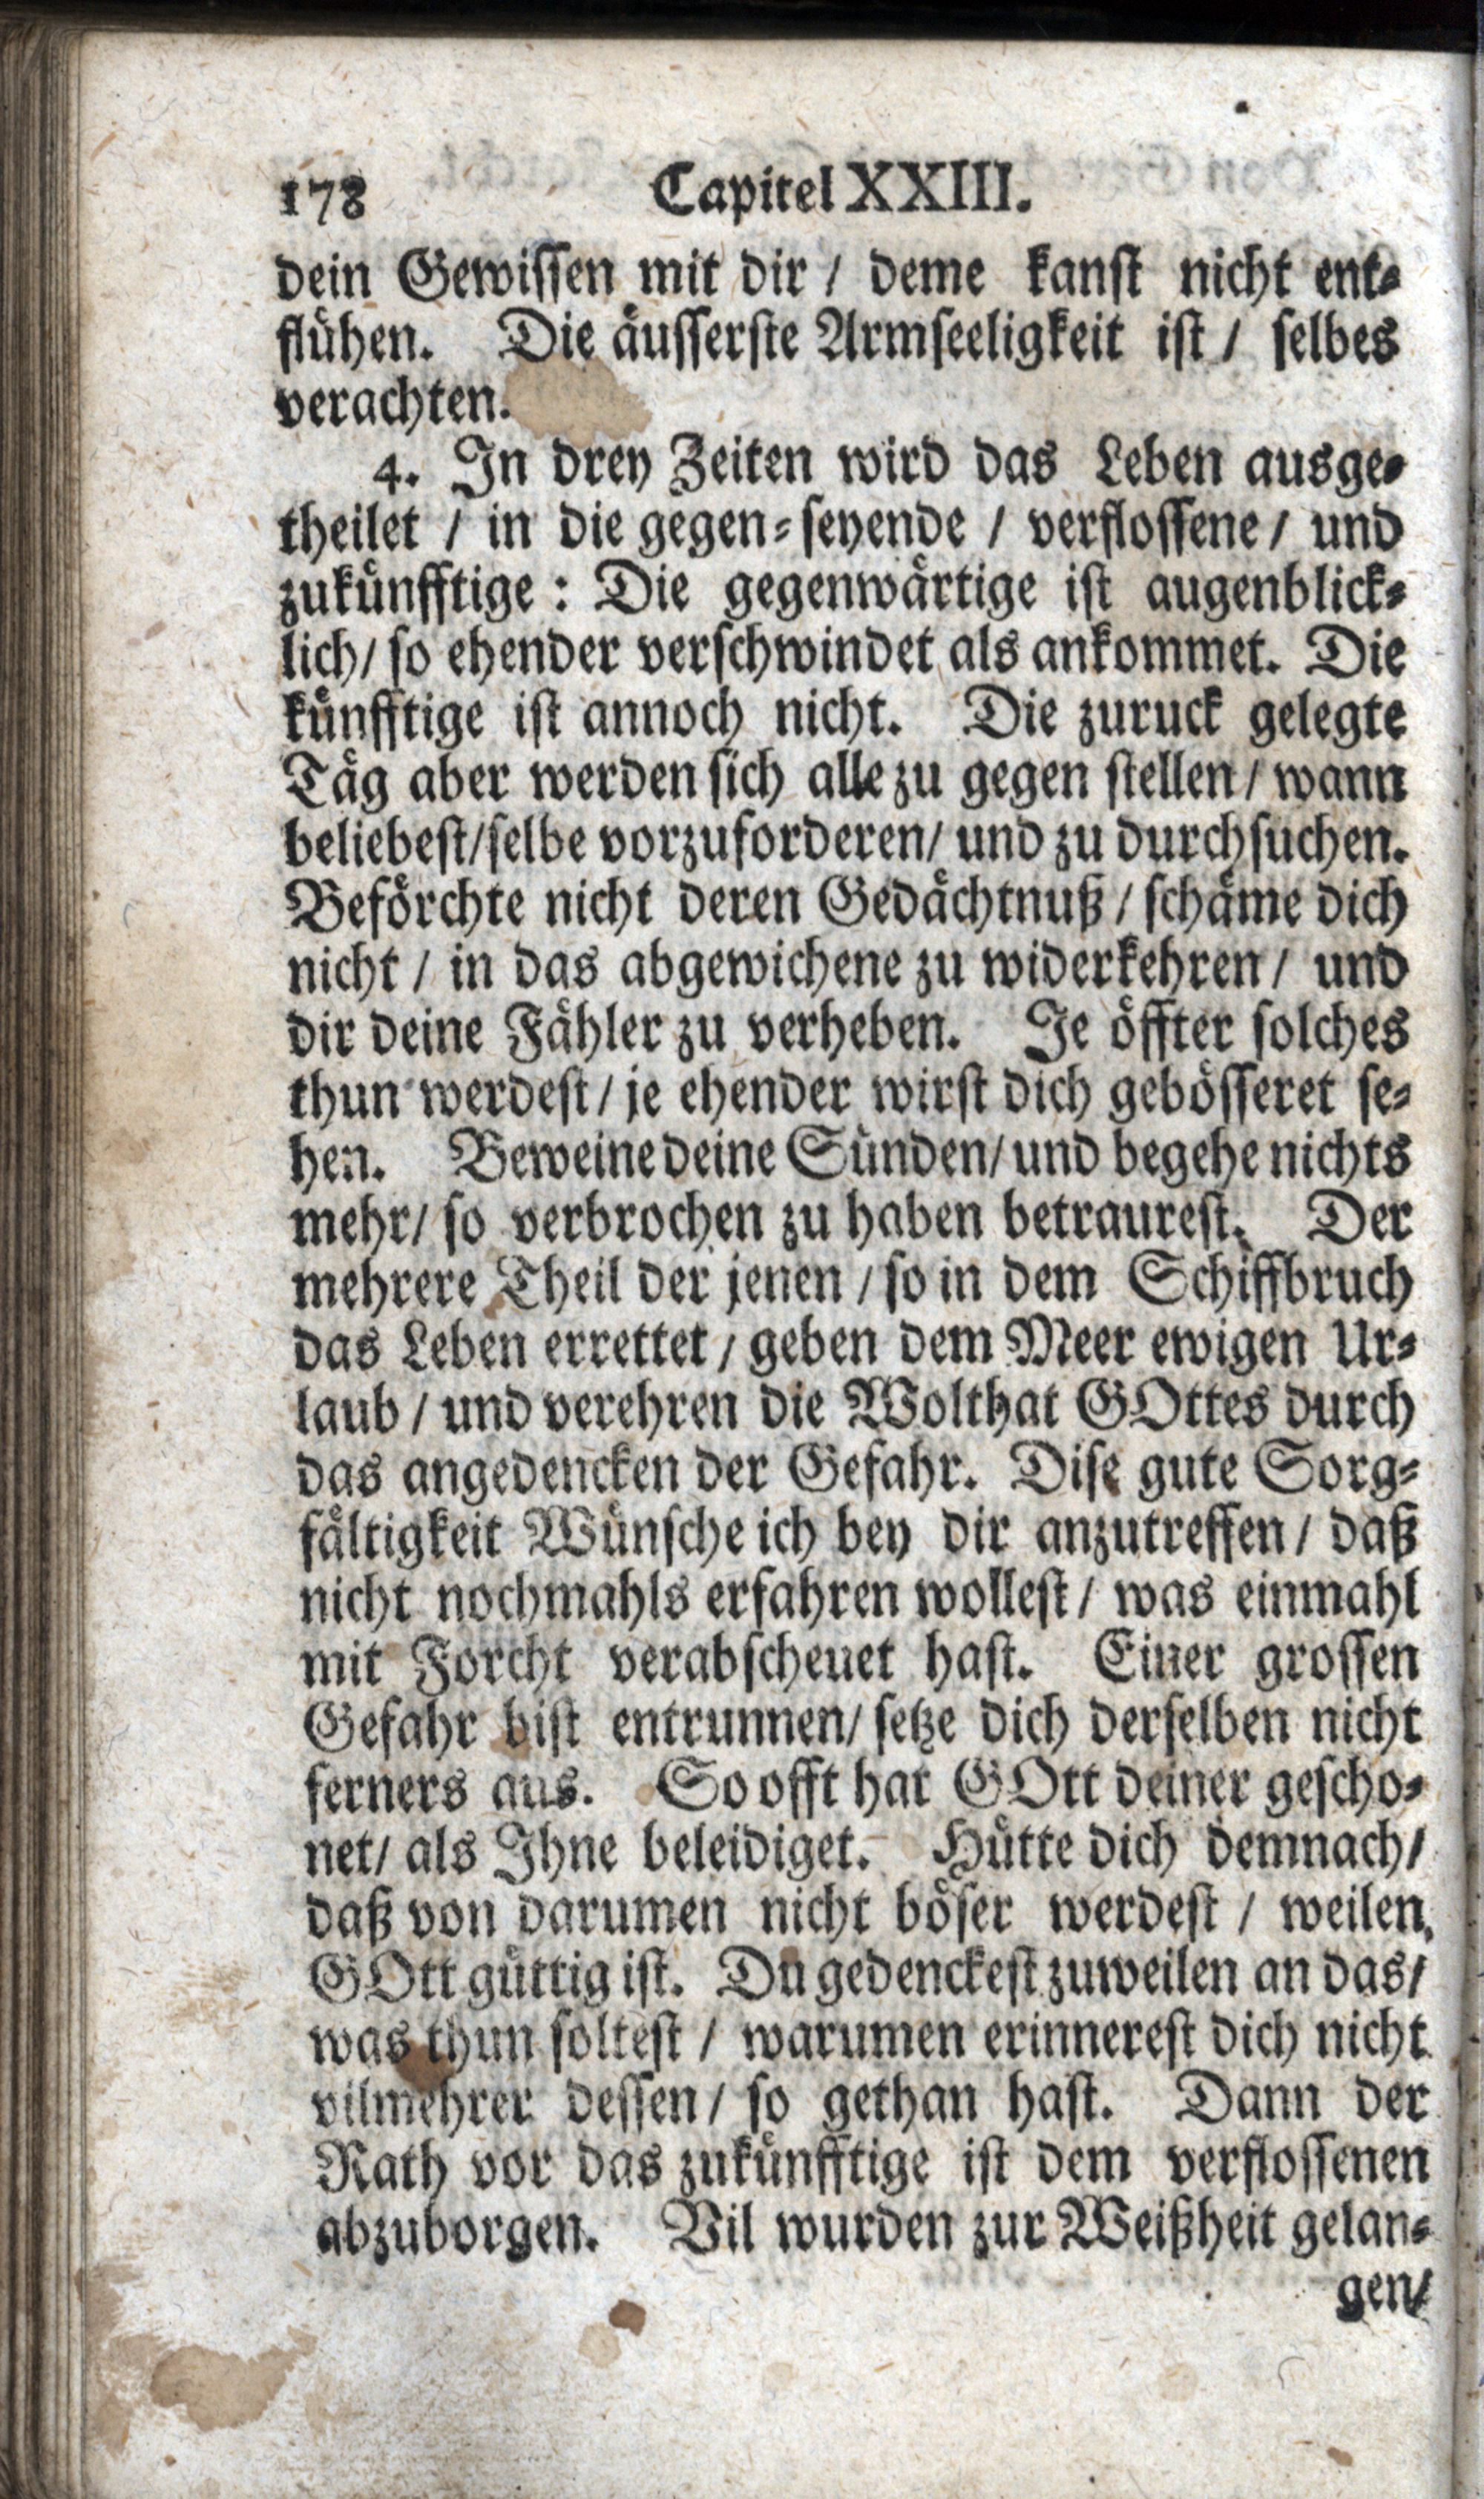 178 Capitel XXIII.
dein Gewissen mit dir / deme kanst nicht ent-
flühen. Die äusserste Armseeligkeit ist / selbes
verachten.
4. In drey Zeiten wird das Leben ausge-
theilet / in die gegen-seyende / verflossene / und
zukünfftige : Die gegenwärtige ist augenblick-
lich / so ehender verschwindet als ankommet. Die
künfftige ist annoch nicht. Die zuruck gelegte
Täg aber werden sich alle zu gegen stellen / wann
beliebest / selbe vorzuforderen / und zu durchsuchen.
Beförchte nicht deren Gedächtnuß / schäme dich
nicht / in das abgewichene zu widerkehren / und
dir deine Fähler zu verheben. Je öffter solches
thun werdest / je ehender wirst dich gebösseret se-
hen. Beweine deine Sünden / und begehe nichts
mehr / so verbrochen zu haben betraurest. Der
mehrere Theil der jenen / so in dem Schiffbruch
das Leben errettet / geben dem Meer ewigen Ur-
laub / und verehren die Wolthat GOttes durch
das angedencken der Gefahr. Dise gute Sorg-
fältigkeit Wünsche ich bey dir anzutreffen / daß
nicht nochmahls erfahren wollest / was einmahl
mit Forcht verabscheuet hast. Einer grossen
Gefahr bist entrunnen / setze dich derselben nicht
ferners aus. So offt hat GOtt deiner gescho-
net / als Ihne beleidiget. Hütte dich demnach /
daß von darumen nicht böser werdest / weilen
GOtt güttig ist. Du gedenckest zuweilen an das /
was thun soltest / warumen erinnerest dich nicht
vilmehrer dessen / so gethan hast. Dann der
Rath vor das zukünfftige ist dem verflossenen
abzuborgen. Vil wurden zur Weißheit gelan-
gen /